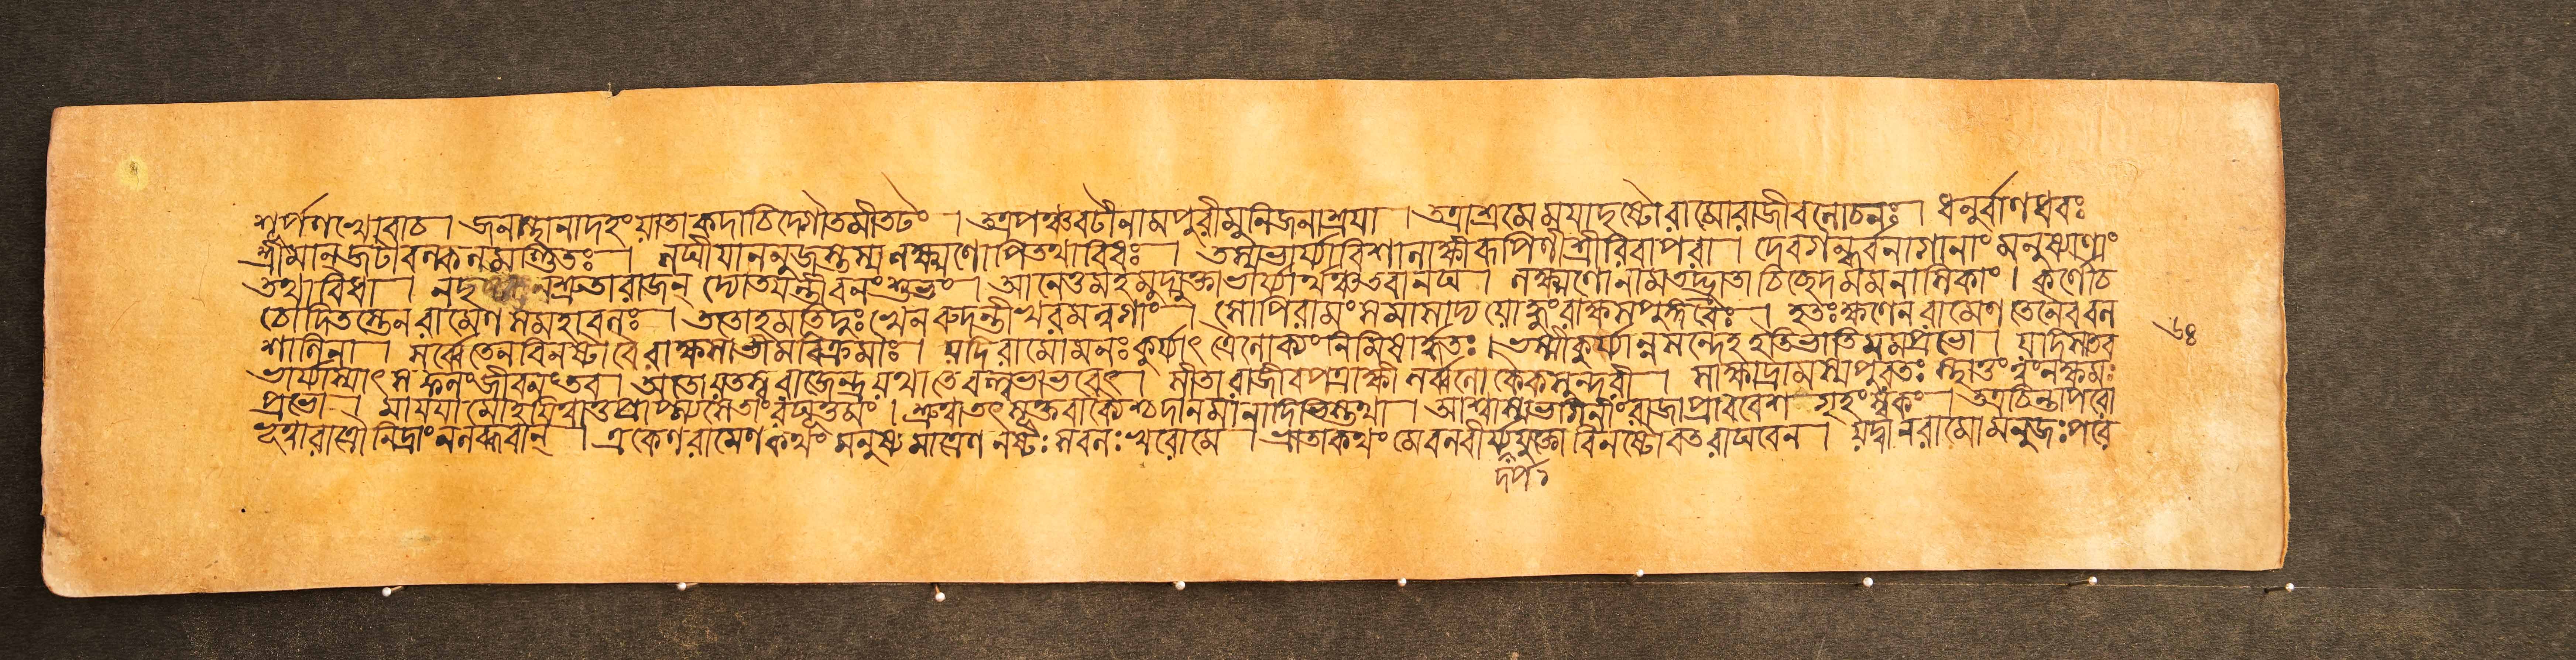 শূর্পণখোবাচ। জনস্থানাদহং যাতা কদাচিদ্গৌতমীতটং। তত্রপঞ্চবটীনামপুরীমুনিজনাশ্রয়া। তত্রাশ্রমেময়াদৃষ্টোরামোরাজীবলোচনঃ। ধনুর্বাণধরঃ
শ্রীমান্জটাবল্কলমণ্ডিতঃ। লঘীয়াননুজস্তস্য লক্ষ্মণোপিতথাবিধঃ। তস্যভার্য্যাবিশালাক্ষীরূপিণীশ্রীরিবাপরা। দেবগন্ধর্বনাগানাং মনুষ্যাণাং
তথাবিধা। নদৃ নশ্রুতারাজন্ দ্যোতয়ন্তীবনংশুভং। আনেতুমহমুদ্যুক্তাভার্য্যার্থঞ্চতবানঘ। লক্ষ্মণোনামতদ্ভ্রাতাচিচ্ছেদমমনাসিকাং। কর্ণৌচ
চোদিতস্তেনরামেণসমহাবলঃ। ততোহমতিদুঃখেনরুদন্তীখরমন্বগাং। সোপিরামংসমাসাদ্যযোদ্ধুংরাক্ষসপুঙ্গবৈঃ। হতঃক্ষণেনরামেণতেনৈববল
শালিনা। সর্ব্বেতেনবিনষ্টাবৈরাক্ষসাভীমবিক্রমাঃ। যদিরামোমনঃকুর্য্যাৎত্রৈলোক্যংনিমিষার্দ্ধতঃ। ভস্মীকুর্য্যান্নসন্দেহইতিভাতিমমপ্রভো। যদিসাতব
ভার্য্যাস্যাৎসফলংজীবনংতব। অতোযতস্বরাজেন্দ্রযথাতেবল্লভাভবেৎ। সীতারাজীবপত্রাক্ষীসর্ব্বলোকৈকসুন্দরী। সাক্ষাদ্রামস্যপুরতঃস্থাতুংত্বংনক্ষমঃ
প্রভো। মায়য়ামোহয়িত্বাতুপ্রাপ্স্যসেতাংরঘূত্তমং। শ্রুত্বাতৎসূক্তবাক্যৈশ্চদানমানাদিভিস্তথা। আশ্বাস্যভগিনীংরাজাপ্রবিবেশ গৃহংস্বকং। তত্রচিন্তাপরো
ভূত্বারাত্রৌনিদ্রাংনলব্ধবান্। একেনরামেণকথং মনুষ্যমাত্রেণনষ্টঃসবলঃখরোমে। ভ্রাতাকথংমেবলবীর্য্যযুক্তোবিনষ্টোবতরাঘবেন। যদ্বানরামোমনুজঃপরে
দর্প২
৬৪